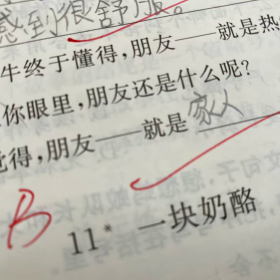 感到很舒服。
牛终于懂得,朋友——就是热
你眼里,朋友还是什么呢?
觉得,朋友——就是 家人
B
11* 一块奶酪